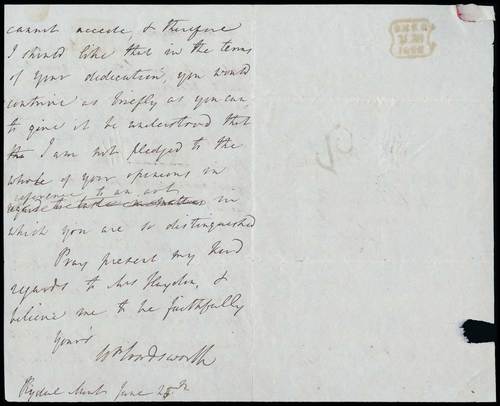 cannot accede, & therefore
I should like that in the terms
of your dedication, you would
contrive as briefly as you can,
to give it be understood that
I am not pledged to the
whole of your opinions in
reference to an art
in
which you are so distinguished
Pray present my kind
regards to Mrs Haydon, &
believe me to be faithfully
Yours
Wm Wordsworth
Rydal Mount June 25th